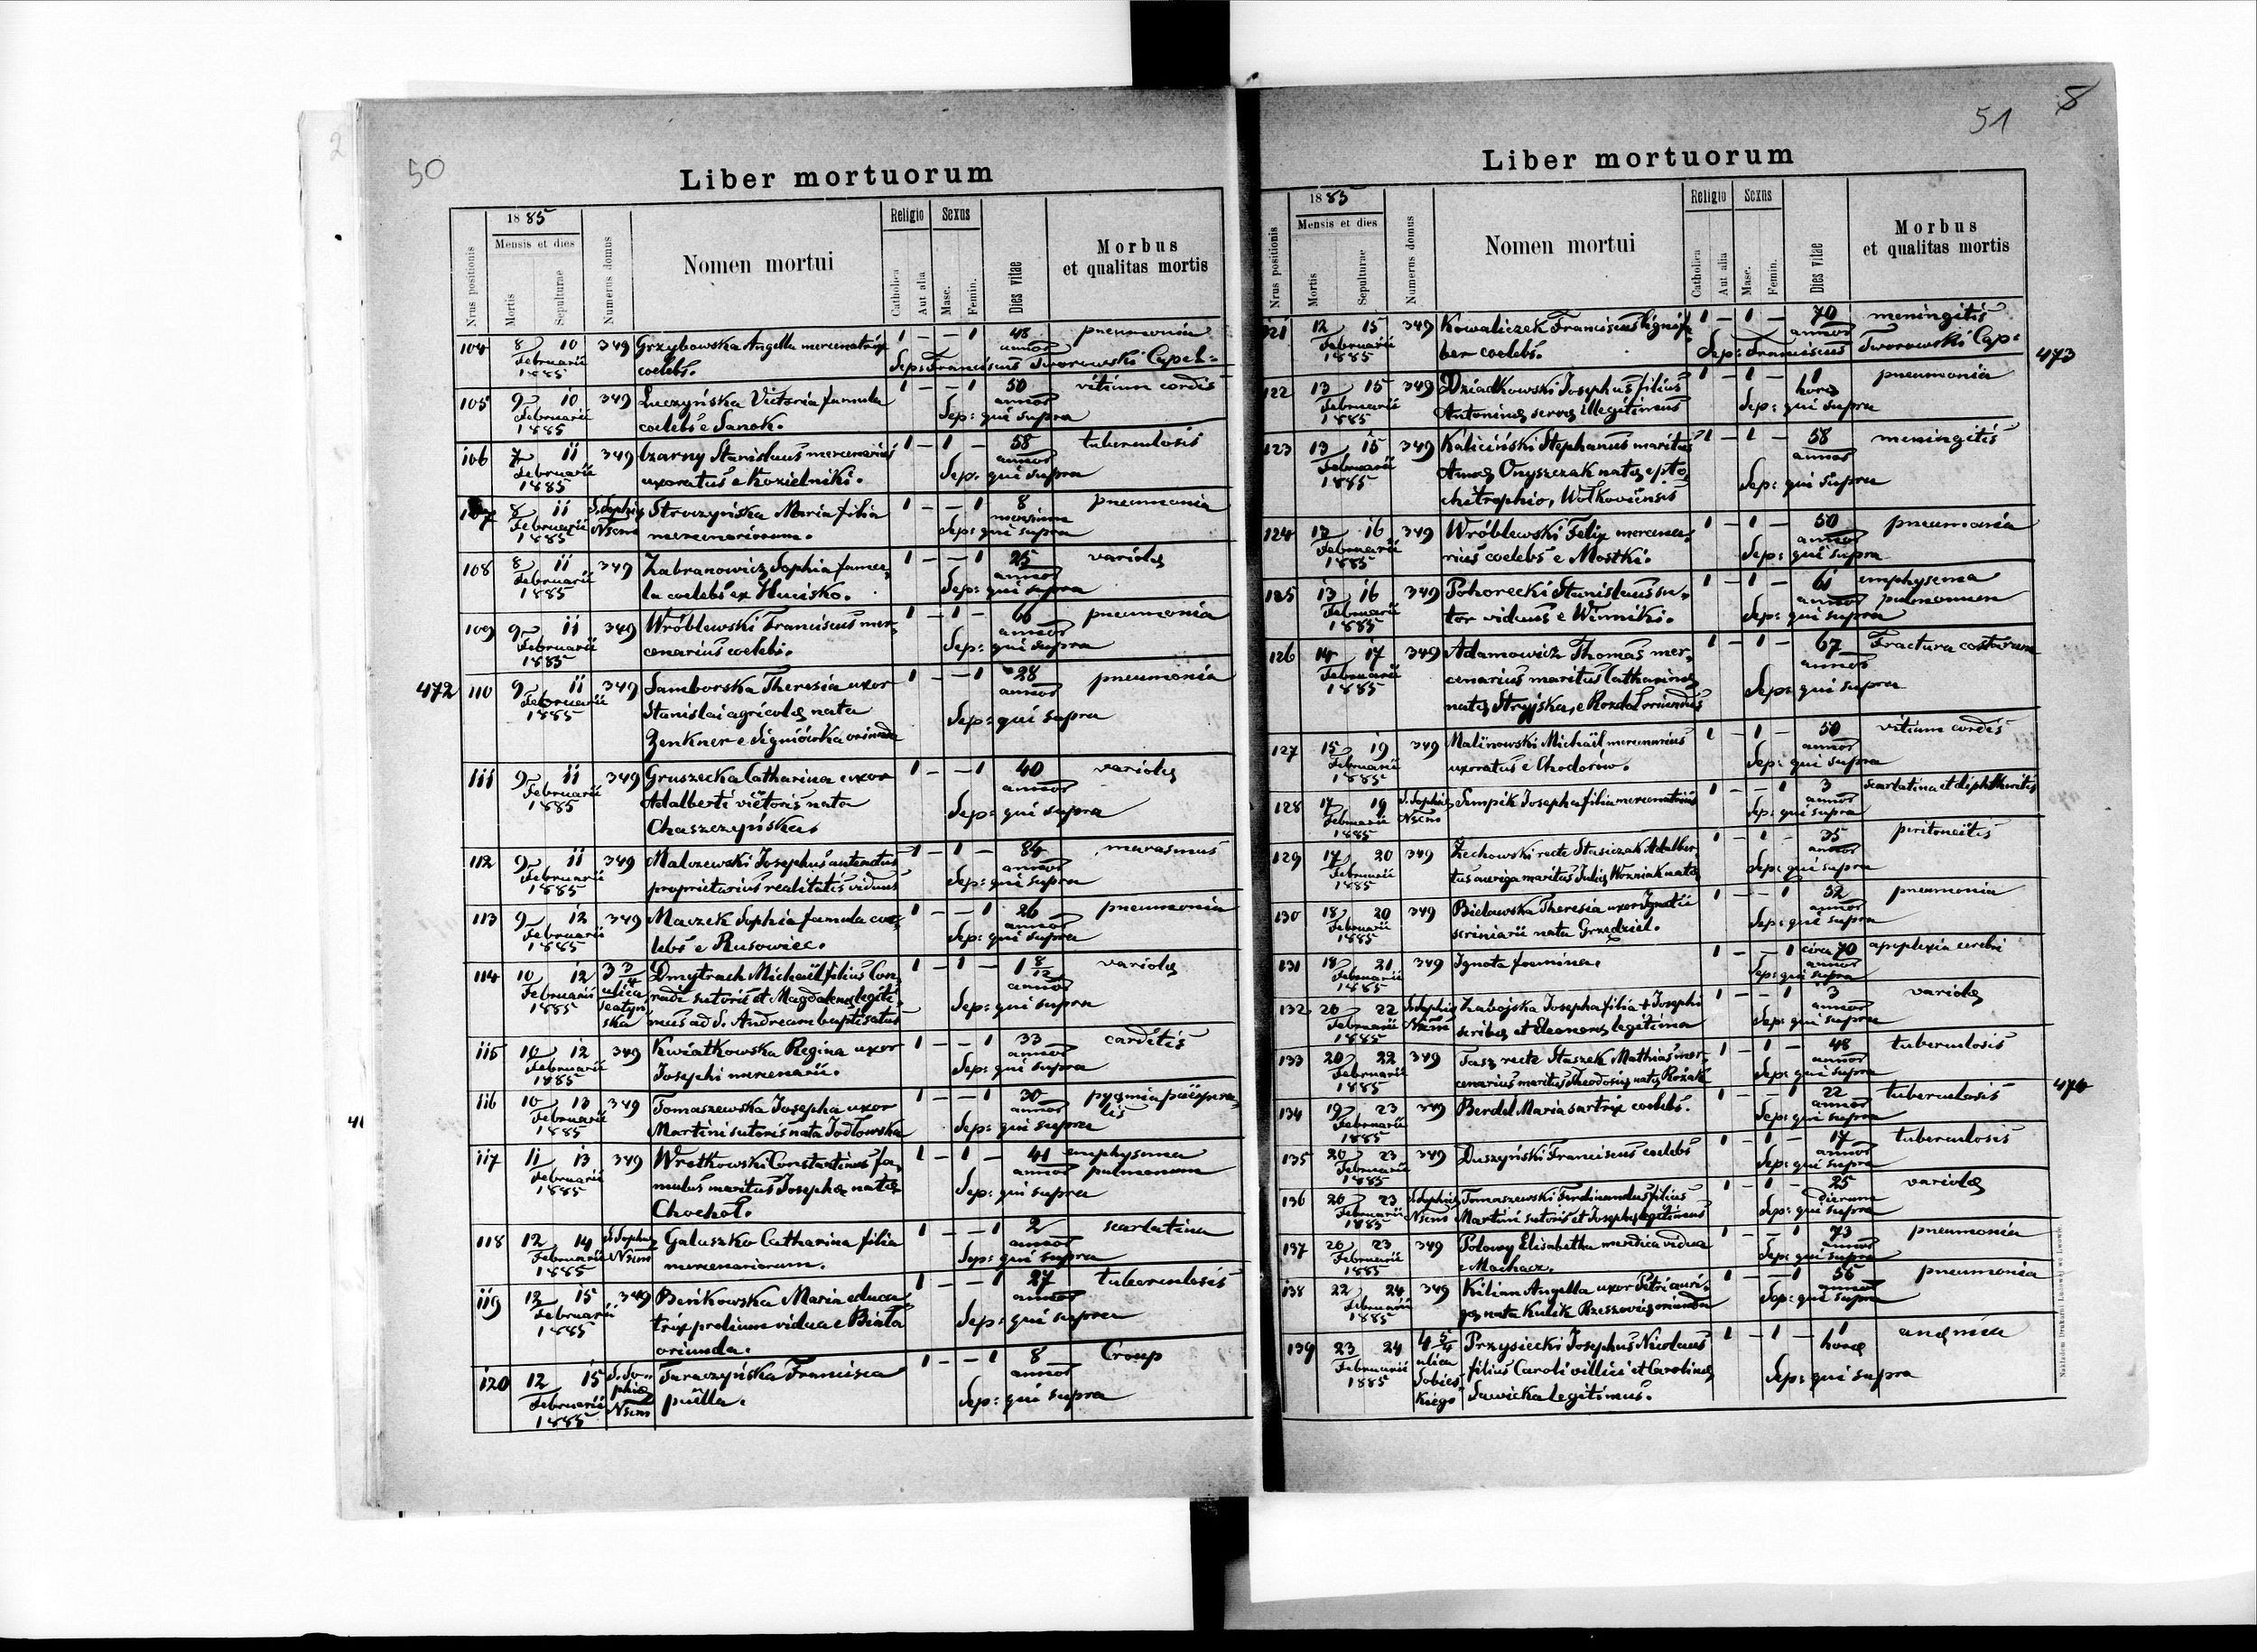 50
Liber mortuorum
1885
Mensis et dies
Nrus positionis
Mortis
Sepulturae
Numerus domus
Nomen mortui
Religio
Catholica
Aut alia
Sexus
Masc.
Femin.
Dies vitae
Morbus
et qualitas mortis
104 8 10 349 Grzybowska Angella mercenatrix 1 – – 1 48 pneumonia
Februarii coelebs. annos
1885 Sep: Franciscus Tworowski Capel=
105 9 10 349 Łuczyńska Victoria famula 1 – – 1 50 vitium cordis
Februarii coelebs e Sanok. annos
1885 Sep: qui supra
106 7 11 349 Czarny Stanislaus mercenarius 1 – 1 – 58 tuberculosis
Februarii uxoratus e Kozielniki. annos
1885 Sep: qui supra
107 8 11 S. Sophiæ Stroczyńska Maria filia 1 – – 1 8 pneumonia
Februarii Nscns mercenariorum. mensium
1885 Sep: qui supra
108 8 11 349 Zabranowicz Sophia famu, 1 – – 1 25 variolæ
Februarii la coelebs ex Hucisko. annos
1885 Sep: qui supra
109 9 11 349 Wróblewski Franciscus mer, 1 – 1 – 66 pneumonia
Februarii cenarius coelebs. annos
1885 Sep: qui supra
472 110 9 11 349 Samborska Theresia uxor 1 – – 1 28 pneumonia
Februarii Stanislai agricolæ nata annos
1885 Zenkner e Signiówka oriunda Sep: qui supra
111 9 11 349 Gruszecka Catharina uxor 1 – – 1 40 variolæ
Februarii Adalberti viëtoris nata annos
1885 Chaszczyńska. Sep: qui supra
112 9 11 349 Malczewski Josephus antenatus 1 – 1 – 84 marasmus
Februarii proprietarius realitatis viduus annos
1885 Sep: qui supra
113 9 12 349 Maczek Sophia famula coe, 1 – – 1 26 pneumonia
Februarii lebs e Rusowiec. annos
1885 Sep: qui supra
114 10 12 3 3/4 Dmytrach Michaël filius Con, 1 – 1 – 1 8/12 variolæ
Februarii ulica radi sutoris et Magdalenæ legiti, annos
1885 Teatyń ska mus ad S. Andream baptisatus Sep: qui supra
115 10 12 349 Kwiatkowska Regina uxor 1 – – 1 33 carditis
Februarii Josephi mercenarii. annos
1885 Sep: qui supra
116 10 13 349 Tomaszewska Josepha uxor 1 – – 1 30 pyæmia püerpera,
Februarii Martini sutoris nata Jodłowska annos lis
1885 Sep: qui supra
117 11 13 349 Wretkowski Constantinus fa, 1 – 1 – 41 emphysema
Februarii mulus maritus Josephæ natæ annos pulmonum
1885 Chochoł. Sep: qui supra
118 12 14 S. Sophiæ Galuszko Catharina filia 1 – – 1 2 scarlatina
Februarii Nscns mercenariorum. annos
1885 Sep: qui supra
119 12 15 349 Beńkowska Maria educa 1 – – 1 27 tuberculosis
Februarii trix prolium vidua e Biała annos
1885 oriunda. Sep: qui supra
120 12 15 S. So, Taraczyńska Francisca 1 – – 1 8 Croup
Februarii phiæ püella. annos
1885 Nscns Sep: qui supra
51
8
Liber mortuorum
1885
Mensis et dies
Nrus positionis
Mortis
Sepulturae
Numerus domus
Nomen mortui
Religio
Catholica
Aut alia
Sexus
Masc.
Femin.
Dies vitae
Morbus
et qualitas mortis
121 12 15 349 Kowaliczek Franciscus lignifa, 1 – 1 – 70 meningitis
Februarii ber coelebs. annos
1885 Sep: Franciscus Tworowski Cap:
473
122 13 15 349 Dziadkowski Josephus filius 1 – 1 – 1 pneumonia
Februarii Antoninæ servæ illegitimus horæ
1885 Sep: qui supra
123 13 15 349 Kaliciński Stephanus maritus 1 – 1 – 58 meningitis
Februarii Annæ Onyszczak natæ e pto, annos
1885 chitrophio, Wołkoviensis Sep: qui supra
124 13 16 349 Wróblewski Felix mercena, 1 – 1 – 50 pneumonia
Februarii rius coelebs e Mostki. annos
1885 Sep: qui supra
125 13 16 349 Pohorecki Stanislaus su, 1 – 1 – 61 emphysema
Februarii tor viduus e Winniki. annos pulmonum
1885 Sep: qui supra
126 14 17 349 Adamowicz Thomas mer, 1 – 1 – 67 Fractura costarum
Februarii cenarius maritus Catharinæ annos
1885 natæ Stryjska, e Rozdoł oriundus Sep: qui supra
127 15 19 349 Malinowski Michaël mercenarius 1 – 1 – 50 vitium cordis
Februarii uxoratus e Chodorow. annos
1885 Sep: qui supra
128 17 19 S. Sophiæ Sempik Josepha filia mercenatricis 1 – – 1 3 scarlatina et diphtheritis
Februarii Nscns annos
1885 Sep: qui supra
129 17 20 349 Zechowski recte Stasiczak Adalber, 1 – 1 – 35 peritoneïtis
Februarii tus auriga maritus Juliæ Woźniak natæ annos
1885 Sep: qui supra
130 18 20 349 Bielawska Theresia uxor Ignatii 1 – – 1 32 pneumonia
Februarii scriniarii nata Grzędziel. annos
1885 Sep: qui supra
131 18 21 349 Ignota foemina. 1 – – 1 circa 70 apoplexia cerebri
Februarii annos
1885 Sep: qui supra
132 20 22 S. Sophiæ Zabojska Josepha filia + Josephi 1 – – 1 3 variolæ
Februarii Nscns scribæ et Eleonoræ legitima annos
1885 Sep: qui supra
133 20 22 349 Tasz recte Staszek Mathias mer, 1 – 1 – 48 tuberculosis
Februarii cenarius maritus Theodosiæ natæ Rożak annos
1885 Sep: qui supra
474
134 19 23 349 Berdel Maria sartrix coelebs. 1 – – 1 22 tuberculosis
Februarii annos
1885 Sep: qui supra
135 20 23 349 Duszyński Franciscus coelebs 1 – 1 – 17 tuberculosis
Februarii annos
1885 Sep: qui supra
136 20 23 S. Sophiæ Tomaszewski Ferdinandus filius 1 – 1 – 25 variolæ
Februarii Nscns Martini sutoris et Josephæ legitimus dierum
1885 Sep: qui supra
137 20 23 349 Polowy Elisabetha mendica vidua 1 – – 1 73 pneumonia
Februarii e Mochacz. annos
1885 Sep: qui supra
138 22 24 349 Kilian Angella uxor Petri auri, 1 – – 1 56 pneumonia
Februarii gæ nata Kulik Rzeszoviæ oriunda annos
1885 Sep: qui supra
139 23 24 4 5/4 Przysiecki Josephus Nicolaus 1 – 1 – 1 anæmia
Februarii ulica filius Caroli villici et Carolinæ horæ
1885 Sobies, Kiego Sawicka legitimus. Sep: qui supra
Nakładem Drukarni Ludowej we Lwowie